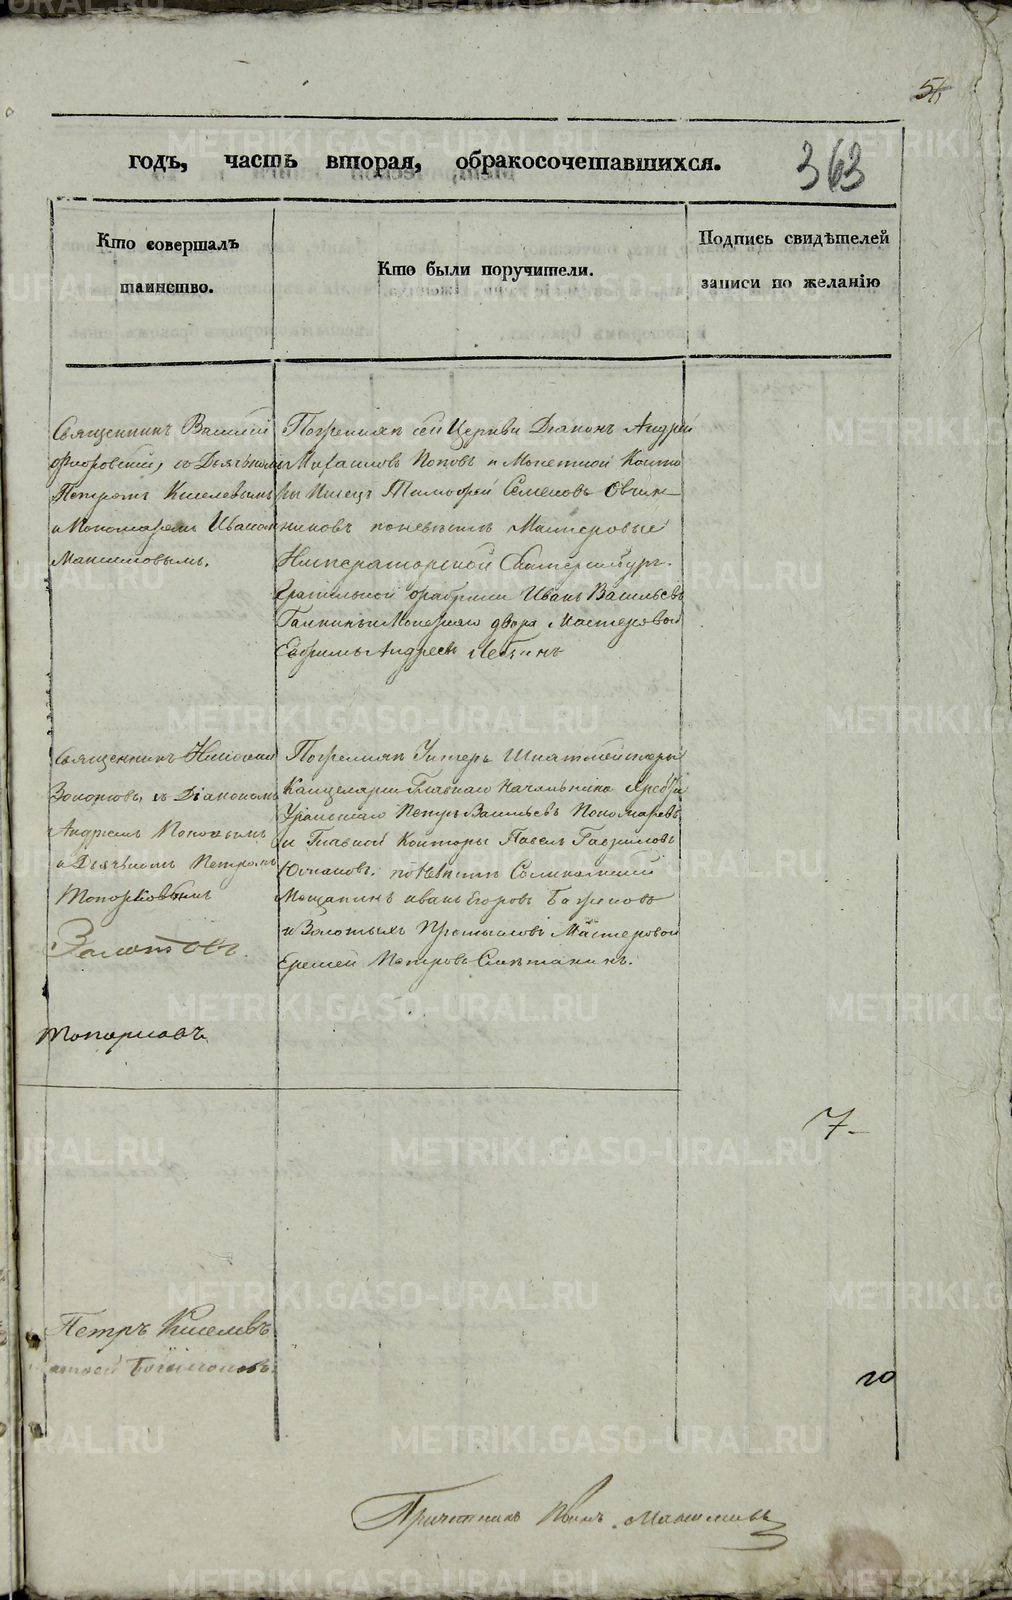 56
363
годъ, часть вторая, о бракосочетавшихся.
Кто совершалъ
таинство.
Кто были поручители.
Подпись свидѣтелей
записи по желанію
Священникъ Василій
Флоровскій, съ Дьячкомъ
Петромъ Киселевымъ
и Пономаремъ Иваномъ
Максимовымъ.
По женихѣ сей Церкви Діаконъ Андрей
Михаиловъ Поповъ и Монетной Конто
ры Писецъ Тимофей Семеновъ Овчин
никовъ по невѣстѣ Мастеровые
Императорской Екатеринбург.
Гранильной фабрики Иванъ Васильевъ
Галкинъ и Монетнаго двора Мастеровый
Ефимъ Андреевъ
Священникъ Николай
Золотовъ, съ Діакономъ
Андреемъ Поповымъ
и Дьячкомъ Петромъ
Топорковымъ
Золотовъ.
Топорковъ
По женихѣ Унтеръ Шихтмейстеры
Канцеляріи Главнаго Начальника Хреб:
Уральскаго Петръ Васильевъ Пономаревъ
и Главной Конторы Павелъ Гавриловъ
по невѣстѣ Соликамскій
Мещанинъ Иванъ Егоровъ
и Золотыхъ Промысловъ Мастеровой
Еремей Петровъ Сметанинъ.
7
Петръ Киселевъ
20
Причетникъ Иванъ Максимовъ
METRIKI.GASO-URAL.RU